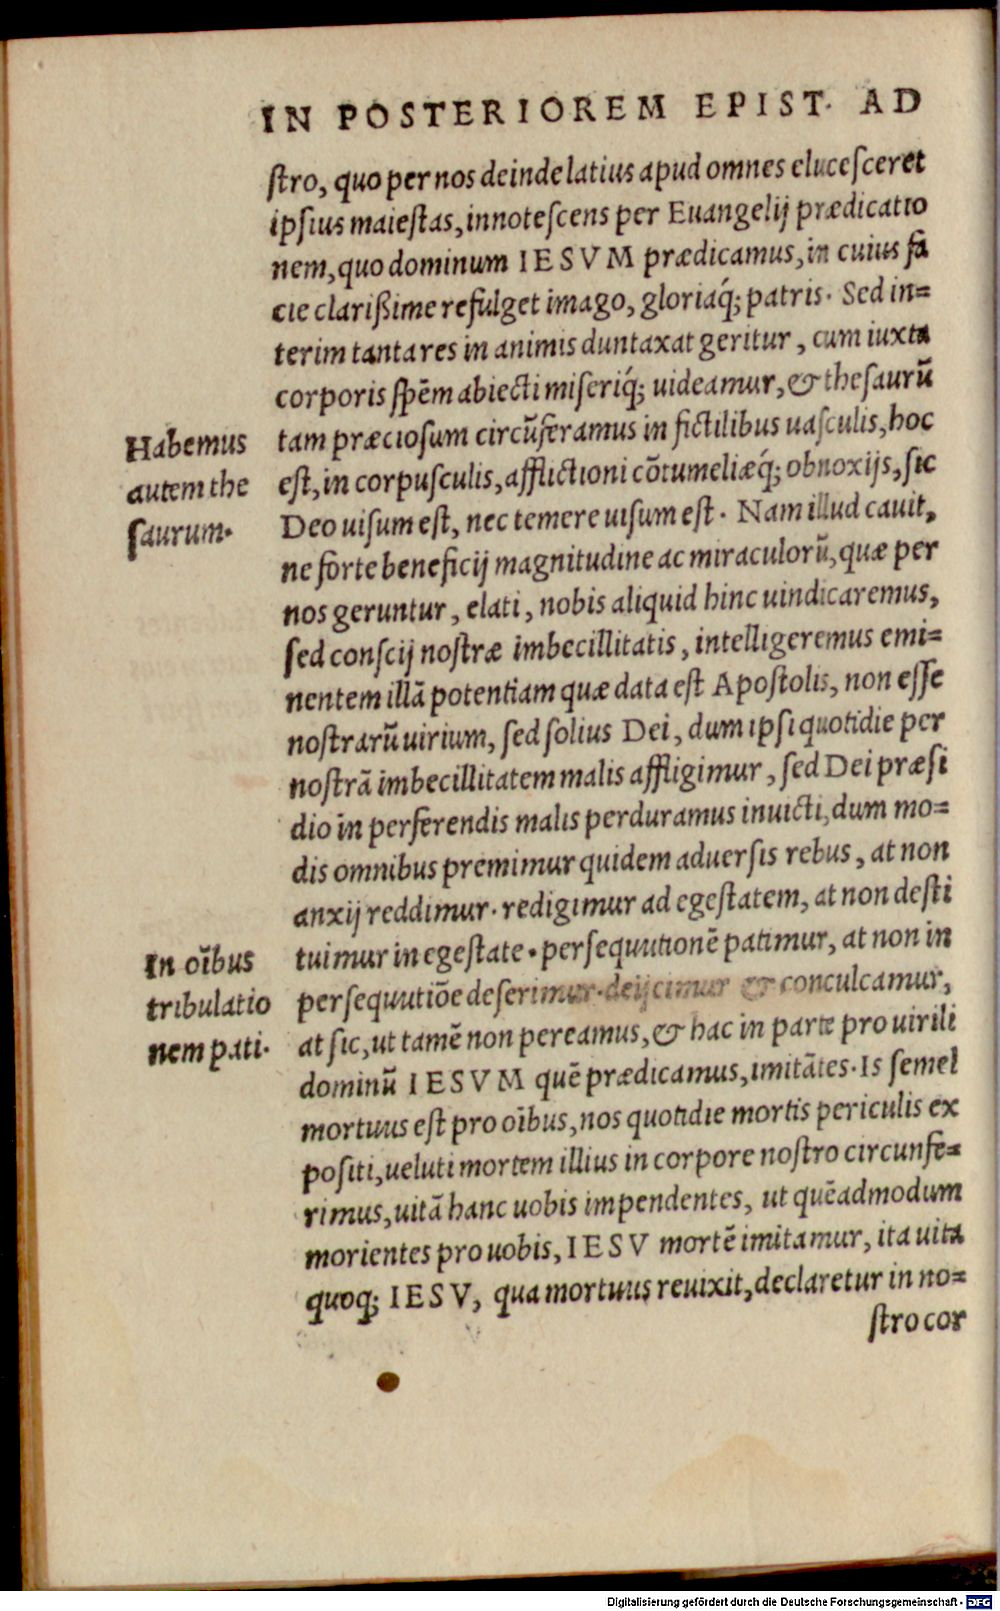 IN POSTERIOREM EPIST. AD
stro, quo per nos deinde latius apud omnes elucesceret
ipsius maiestas, innotescens per Euangelij prædicatio
nem, quo dominum IESVM prædicamus, in cuius fa
cie clarißime refulget imago, gloriaq́; patris. Sed in=
terim tanta res in animis duntaxat geritur, cum iuxta
corporis spēm abiecti miseriq́; uideamur, & thesaurũ
Habemus
autem the
saurum.
tam præciosum circũferamus in fictilibus uasculis, hoc
est, in corpusculis, afflictioni cõtumeliæq́; obnoxijs, sic
Deo uisum est, nec temere uisum est. Nam illud cauit,
ne forte beneficij magnitudine ac miraculorũ, quæ per
nos geruntur, elati, nobis aliquid hinc uindicaremus,
sed conscij nostræ imbecillitatis, intelligeremus emi=
nentem illã potentiam quæ data est Apostolis, non esse
nostrarũ uirium, sed solius Dei, dum ipsi quotidie per
nostrã imbecillitatem malis affligimur, sed Dei præsi
dio in perferendis malis perduramus inuicti, dum mo=
dis omnibus premimur quidem aduersis rebus, at non
anxij reddimur. redigimur ad egestatem, at non desti
In oĩbus
tribulatio
nem pati.
tuimur in egestate. persequutionē patimur, at non in
persequutiõe deserimur. deijcimur & conculcamur,
at sic, ut tamē non pereamus, & hac in parte pro uirili
dominũ IESVM quē prædicamus, imitãtes. Is semel
mortuus est pro oĩbus, nos quotidie mortis periculis ex
positi, ueluti mortem illius in corpore nostro circunfe=
rimus, uitã hanc uobis impendentes, ut quēadmodum
morientes pro uobis, IESV mortē imitamur, ita uita
quoq; IESV, qua mortuus reuixit, declaretur in no=
stro cor
Digitalisierung gefördert durch die Deutsche Forschungsgemeinschaft - DFG